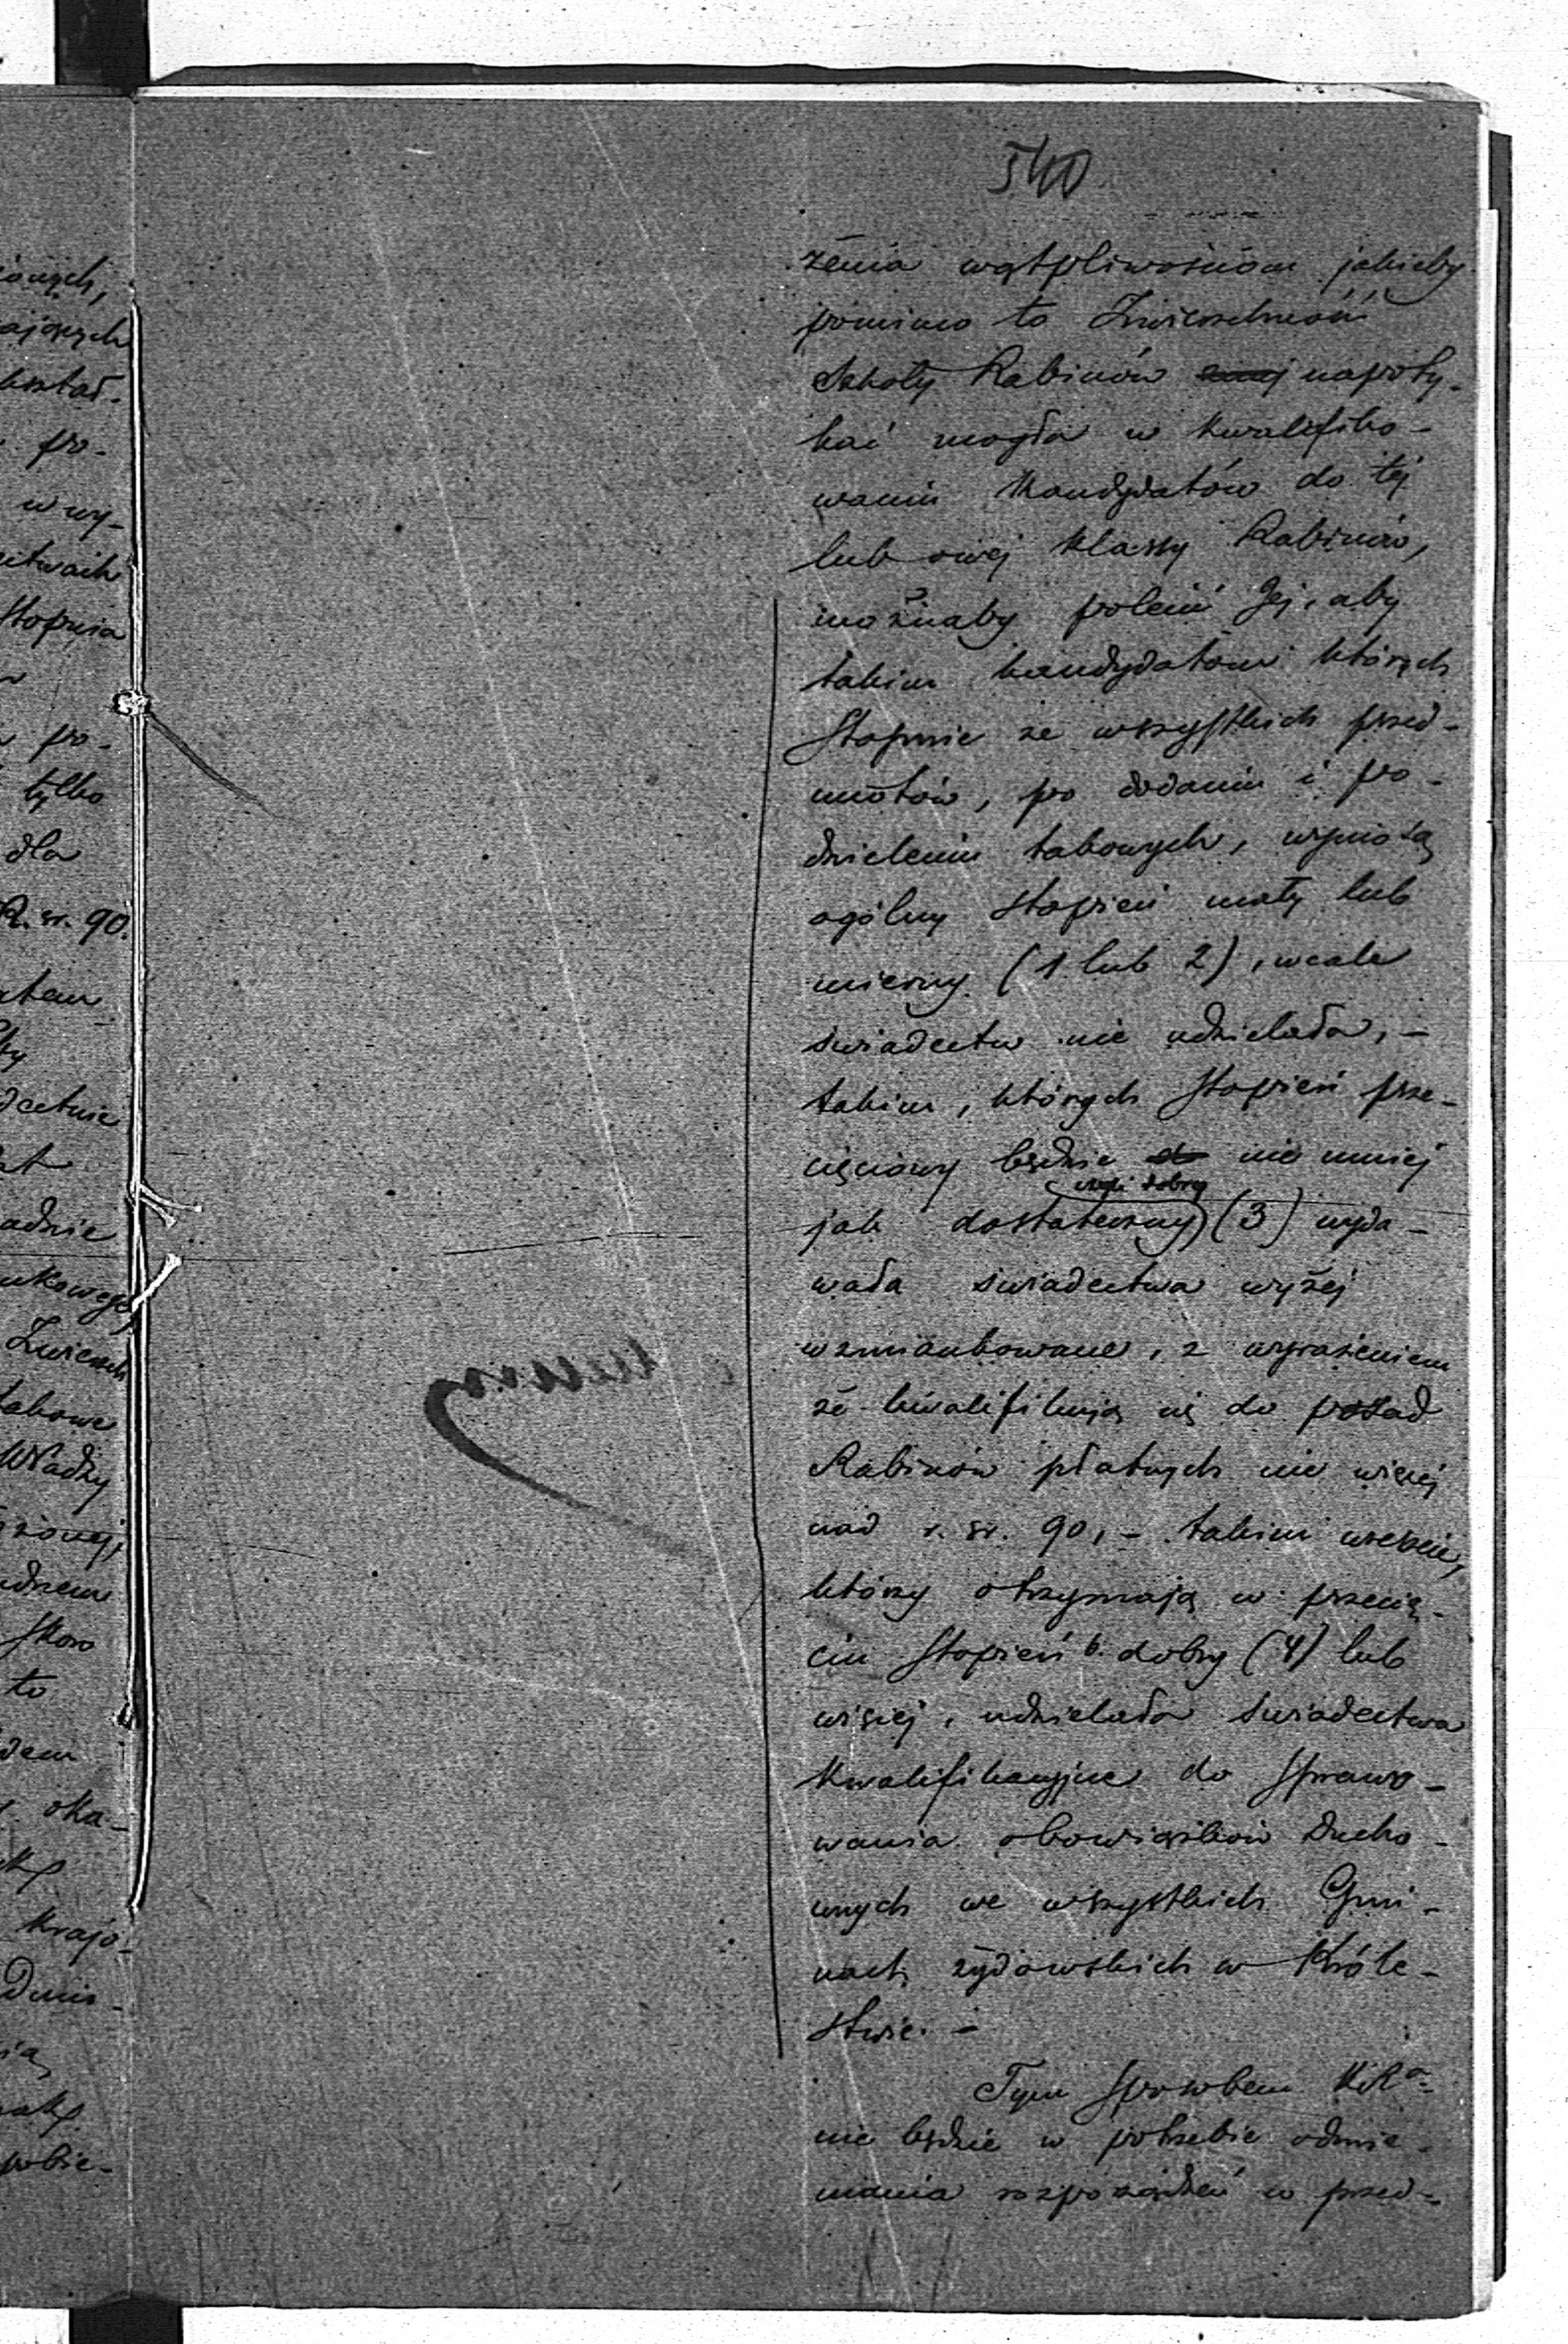 540
żenia wątpliwościom jakieby
pomimo to Zwierzchność
Szkoły Rabinów napoty-
kać mogła w kwalifiko-
waniu Kandydatów do téj
lub owéj klassy Rabinów,
możnaby polecić Jéj, aby
takim kandydatom których
Stopnie ze wszystkich przed-
miotów, po dodaniu i po-
dzieleniu takowych, wyniosą
ogólny stopień mały lub
mierny (1 lub 2), wcale
świadectw nie udzielała, –
takim, których Stopień prze-
cięciowy będzie nie mniéj
czyli dobry
jak dostateczny (3) wyda-
wała świadectwa wyżéj
wzmiankowane, z wyrażeniem
że kwalifikują się do posad
Rabinów płatnych nie więcéj
nad r. sr. 90, – takim wreszcie,
którzy otrzymają w przecię-
ciu Stopień b. dobry (4) lub
więcéj, udzielała świadectwa
kwalifikacyjne do Sprawo-
wania obowiązków Ducho-
wnych we wszystkich Gmi-
nach żydowskich w Króle-
stwie. –
Tym Sposobem
nie będzie w potrzebie odmie-
niania rozporządzeń w przed-
ajęcych
kształ-
po-
w wy-
Stopnia
po-
tylko
dla
R. sr. 90.
Zwierzch
takowe
Władzy
Skoro
to
oka-
Krajo-